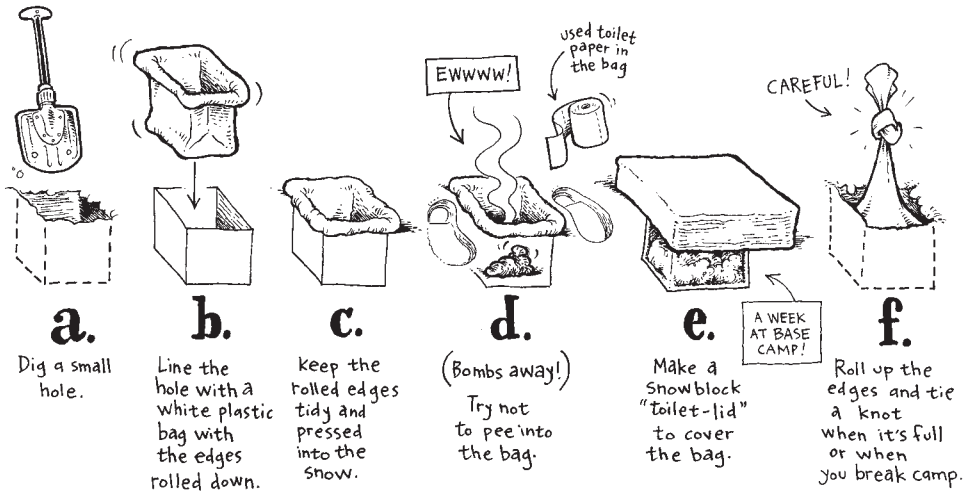 a.
Dig a small
hole.
b.
Line the
hole with a
white plastic
bag with
the edges
rolled down.
c.
Keep the
rolled edges
tidy and
pressed
into the
snow.
EWWWW!
used toilet
paper in
the bag
d.
(Bombs away!)
Try not
to pee into
the bag.
e.
Make a
snowblock
"toilet-lid"
to cover
the bag.
A WEEK
AT BASE
CAMP!
CAREFUL!
f.
Roll up the
edges and tie
a knot
when it's full
or when
you break camp.